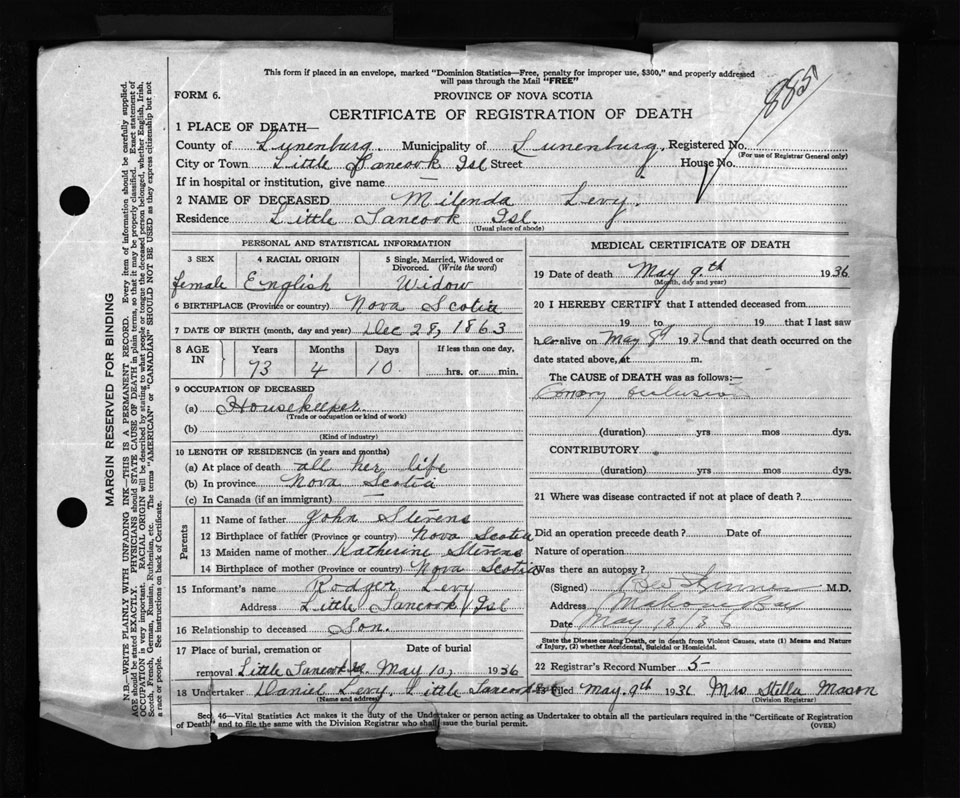 This form if placed in an envelope, marked "Dominion Statistics—Free, penalty for improper use, $300," and properly addressed
will pass through the Mail "FREE"
885
FORM 6.
PROVINCE OF NOVA SCOTIA
CERTIFICATE OF REGISTRATION OF DEATH
1 PLACE OF DEATH—
County of Lunenburg. Municipality of Lunenburg, Registered No.
(For use of Registrar General only)
City or Town Little Tancook Isl Street House No.
If in hospital or institution, give name —
2 NAME OF DECEASED Milenda Levy.
Residence Little Tancook Isl.
(Usual place of abode)
PERSONAL AND STATISTICAL INFORMATION
3 SEX
female
4 RACIAL ORIGIN
English
5 Single, Married, Widowed or
Divorced. (Write the word)
Widow
6 BIRTHPLACE (Province or country) Nova Scotia
7 DATE OF BIRTH (month, day and year) Dec 28, 1863
8 AGE IN
Years Months Days If less than one day,
73 4 10 hrs. or min.
9 OCCUPATION OF DECEASED
(a) Housekeeper
(Trade or occupation or kind of work)
(b)
(Kind of industry)
10 LENGTH OF RESIDENCE (in years and months)
(a) At place of death all her life
(b) In province Nova Scotia
(c) In Canada (if an immigrant) —
Parents
11 Name of father John Stevens
12 Birthplace of father (Province or country) Nova Scotia
13 Maiden name of mother Katherine Stevens
14 Birthplace of mother (Province or country) Nova Scotia
15 Informant's name Rodger Levy
Address Little Tancook Isl
16 Relationship to deceased Son.
17 Place of burial, cremation or Date of burial
removal Little Tancook Isl. May 10, 1936
18 Undertaker Daniel Levy, Little Tancook Isl
(Name and address)
MEDICAL CERTIFICATE OF DEATH
19 Date of death May 9th 1936
(Month, day and year)
20 I HEREBY CERTIFY that I attended deceased from
19 to 19 that I last saw
her alive on May 8 1936 and that death occurred on the
date stated above, at m.
The CAUSE of DEATH was as follows:—
Coronary occlusion
(duration) yrs mos dys.
CONTRIBUTORY
(duration) yrs mos dys.
21 Where was disease contracted if not at place of death?
Did an operation precede death? Date of
Nature of operation
Was there an autopsy?
(Signed) M.D.
Address Mahone Bay
Date May /36
State the Disease causing Death, or in death from Violent Causes, state (1) Means and Nature
of Injury, (2) whether Accidental, Suicidal or Homicidal.
22 Registrar's Record Number 5
23 Filed May. 9th 1936 Mrs Stella Mason
(Division Registrar)
Sec. 46—Vital Statistics Act makes it the duty of the Undertaker or person acting as Undertaker to obtain all the particulars required in the "Certificate of Registration
of Death" and to file the same with the Division Registrar who shall issue the burial permit.
(OVER)
MARGIN RESERVED FOR BINDING
N.B.—WRITE PLAINLY WITH UNFADING INK—THIS IS A PERMANENT RECORD. Every item of information should be carefully supplied.
AGE should be stated EXACTLY. PHYSICIANS should STATE CAUSE OF DEATH in plain terms, so that it may be properly classified. Exact statement of
OCCUPATION is very important. RACIAL ORIGIN will be described by stating to what people or tongue the deceased person belonged, whether English, Irish,
Scotch, French, German, Russian, Ruthenian, etc. The terms "AMERICAN" or "CANADIAN" SHOULD NOT BE USED as they express citizenship but not
a race or people. See instructions on back of Certificate.